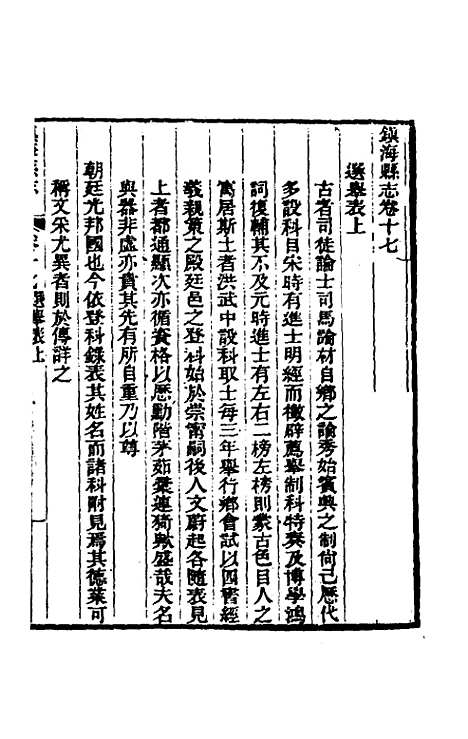 鎮海縣志卷十七
選舉表上
古者司徒論士司馬論材自鄉之論秀始賓興之制尙已歷代
多設科目宋時有進士明經而徵辟薦舉制科特奏及博學鴻
詞復輔其不及元時進士有左右二榜左榜則蒙古色目人之
寓居斯土者洪武中設科取士每三年舉行鄉會試以四書經
義親策之殿廷邑之登科始於崇甯嗣後人文蔚起各隨表見
上者都通顯次亦循資格以歷勤階茅茹彙連猗歟盛哉夫名
與器非虛亦貴其先有所自重乃以尊
朝廷光邦國也今依登科錄表其姓名而諸科附見焉其德業可
稱文采尤異者則於傳詳之
選舉表上